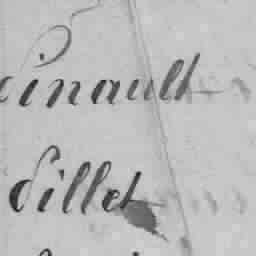 dinault
dillet